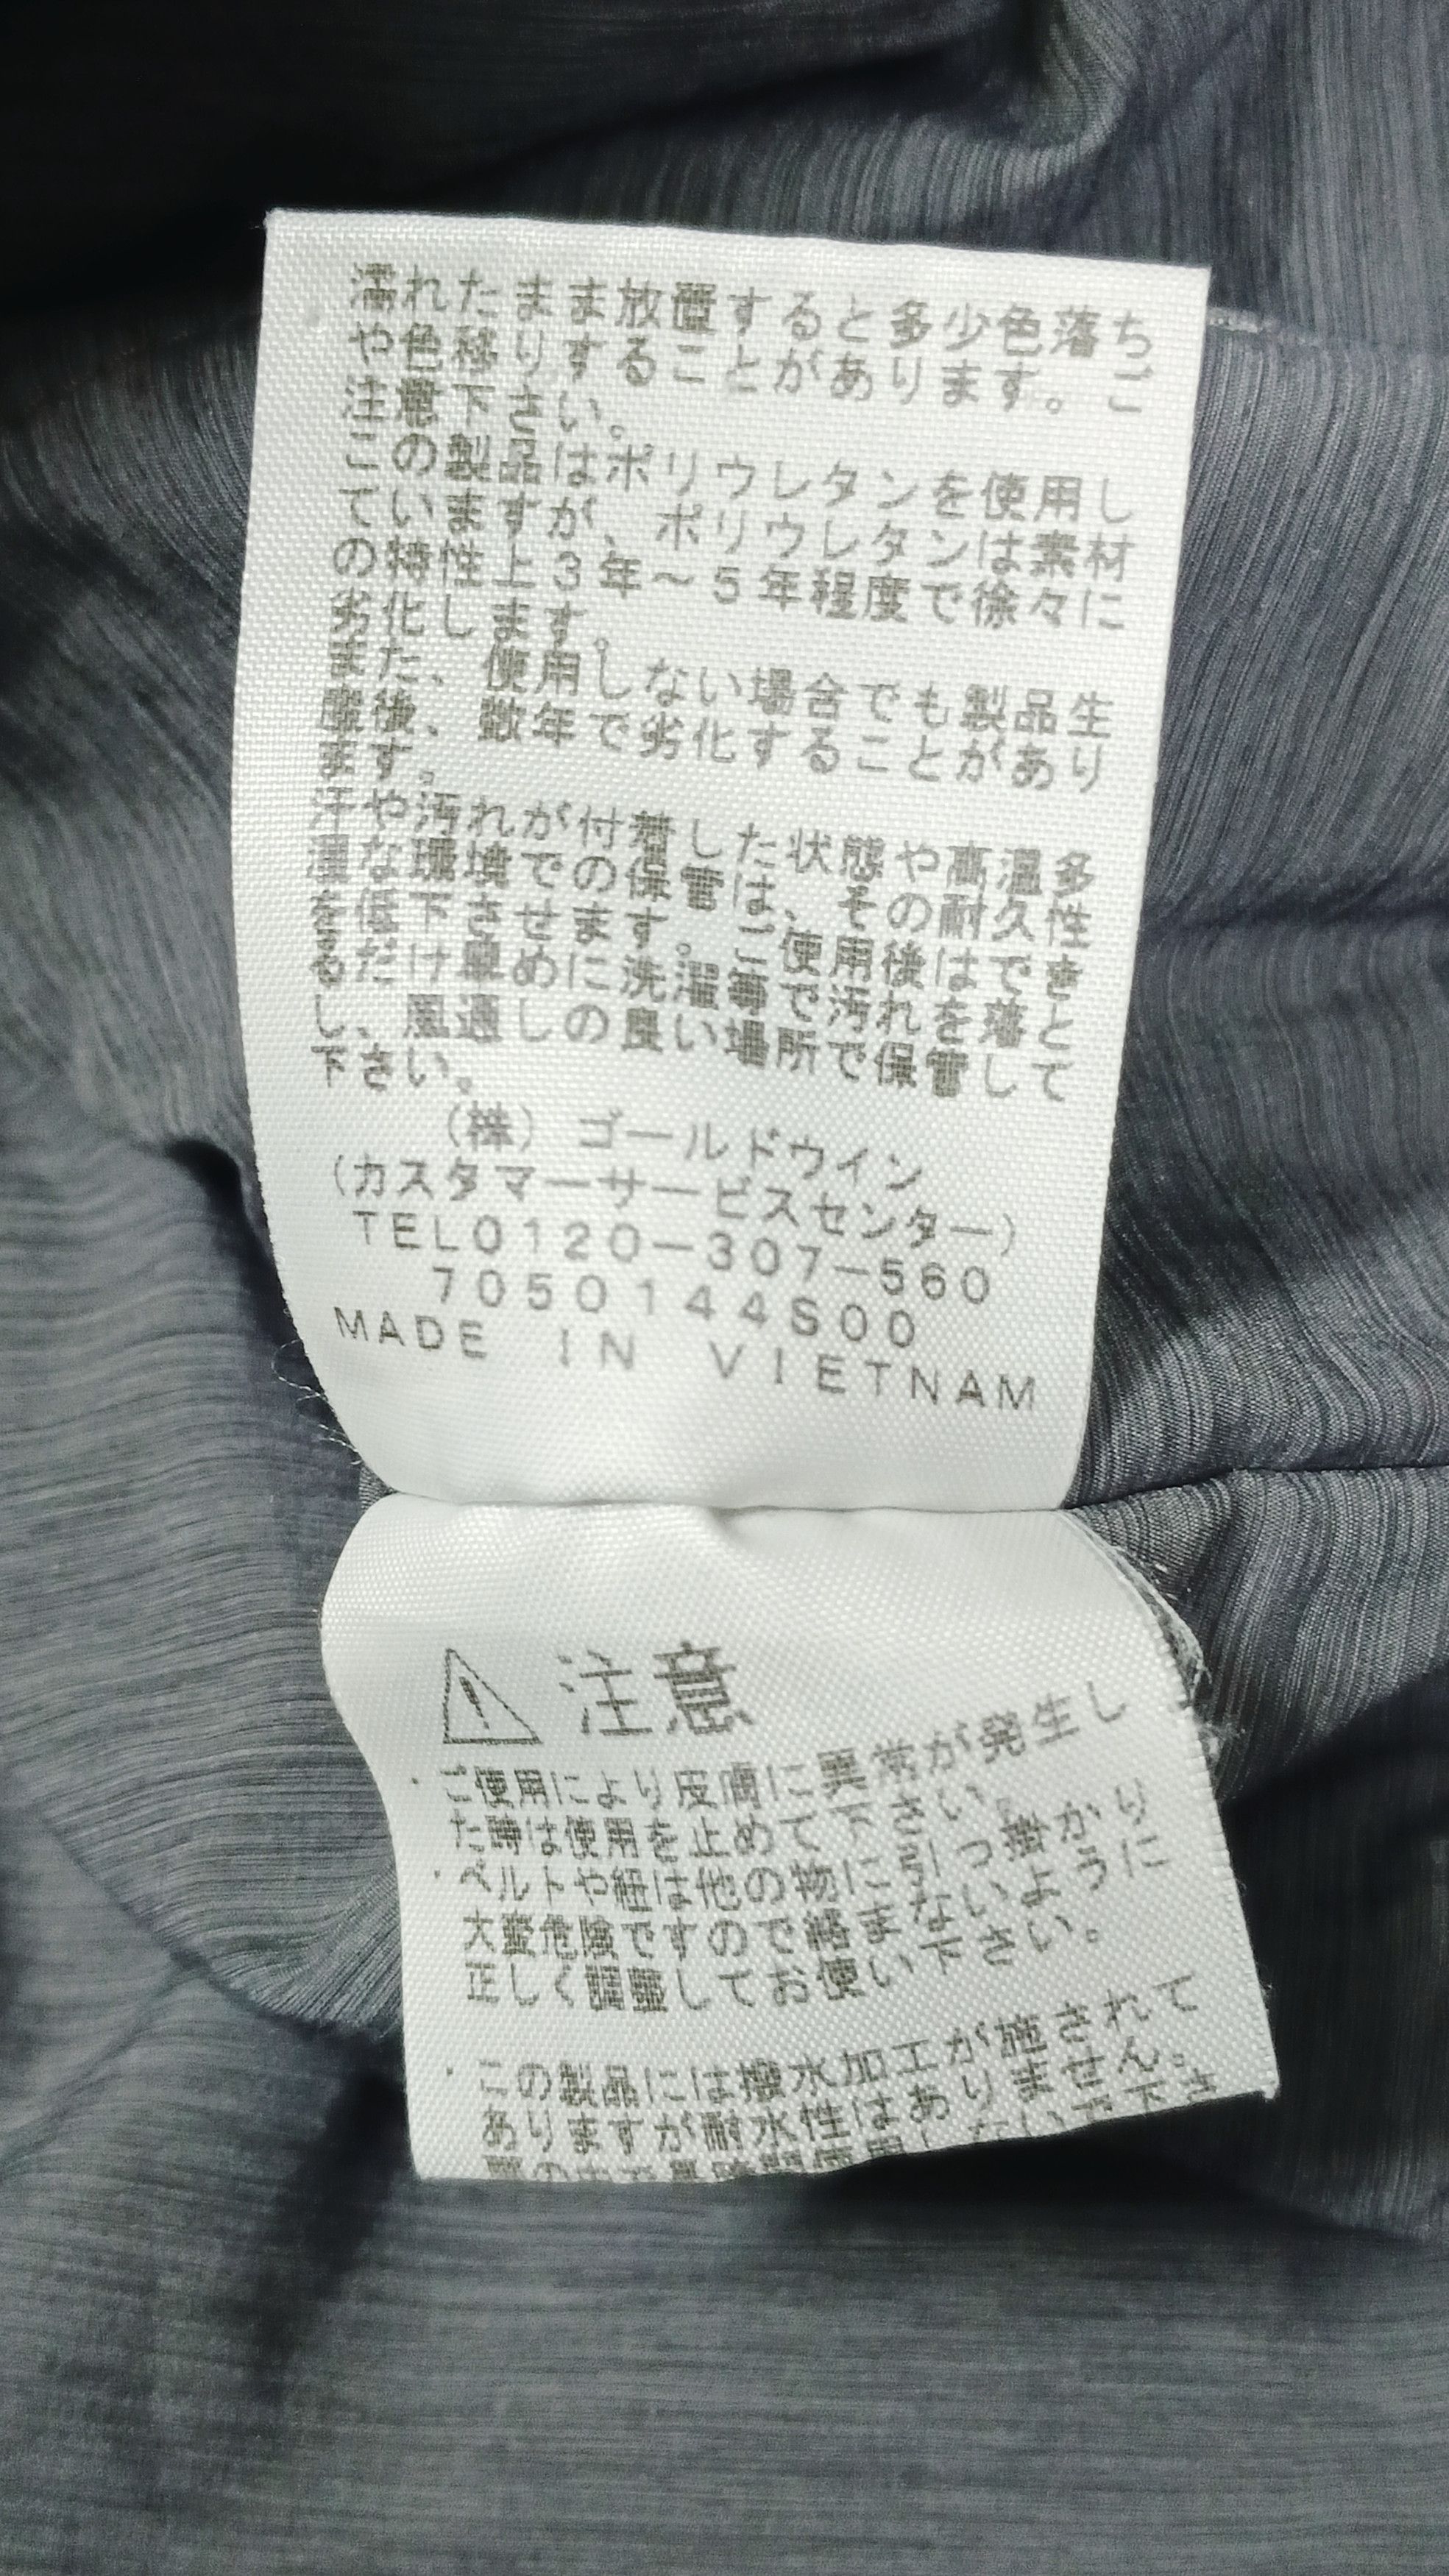 濡れたまま放置すると多少色落ち
や色移りすることがあります。ご
注意下さい。
この製品はポリウレタンを使用し
ていますが、ポリウレタンは素材
の特性上3年～5年程度で徐々に
劣化します。
また、使用しない場合でも製品生
産後、数年で劣化することがあり
ます。
汗や汚れが付着した状態や高温多
湿な環境での保管は、その耐久性
を低下させます。ご使用後はでき
るだけ早めに洗濯等で汚れを落と
し、風通しの良い場所で保管して
下さい。
(株) ゴールドウイン
(カスタマーサービスセンター)
TEL0120-307-560
7050144S00
MADE IN VIETNAM
注意
・ご使用により皮膚に異常が発生し
た時は使用を止めて下さい。
・ベルトや紐は他の物に引っ掛かり
大変危険ですので絡まないように
正しく調整してお使い下さい。
・この製品には撥水加工が施されて
ありますが耐水性はありません。